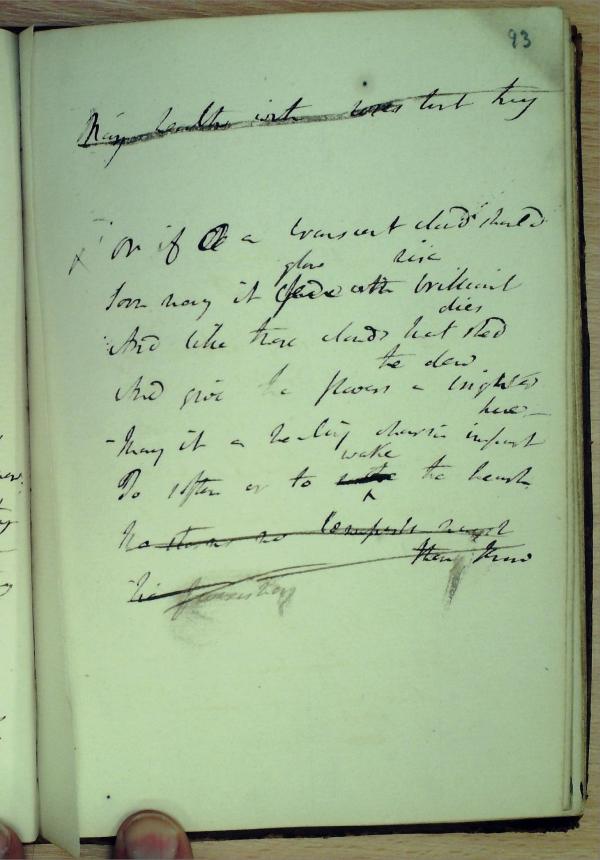 93
May health with but they
x Or if a transient cloud should
rise
Soon may it glow with brilliant
dies
And like those clouds that shed
the dew
And give the flowers a brighter
hue —
May it a healing charm impart
To soften or to wake the heart.
No storms no tempests
they know